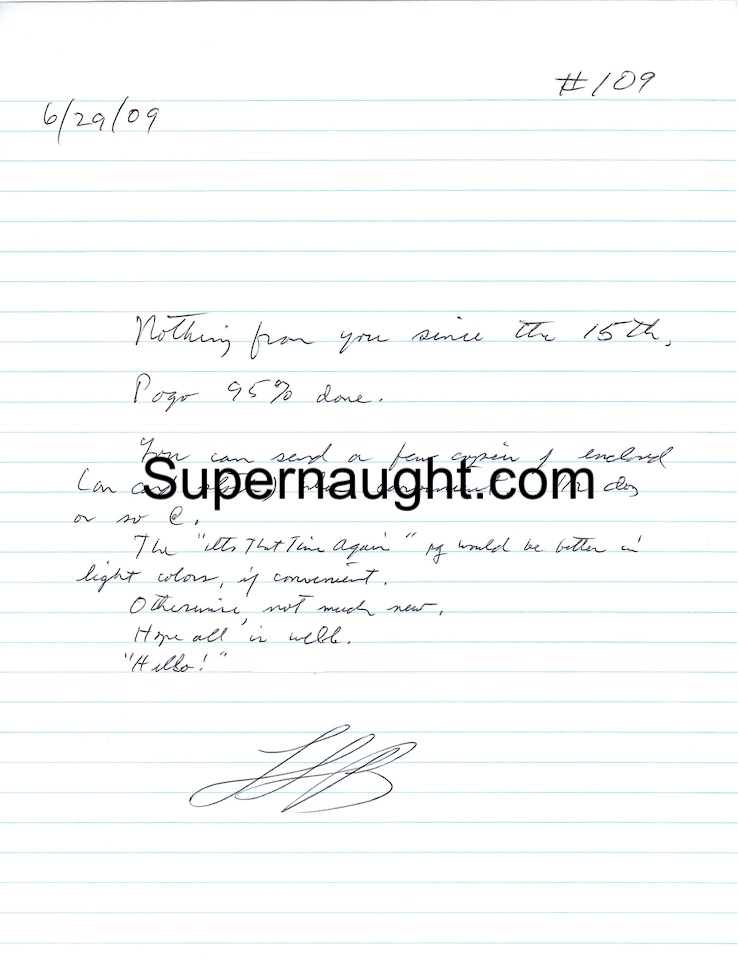 #109
6/29/09
Nothing from you since the 15th.
Pogo 95% done.
You can send a few copies of enclosed
(on
Supernaught.com
doz
or so @.
The "It's That Time Again" pg would be better in
light colors, if convenient.
Otherwise, not much new.
Hope all is well.
"Hello!"